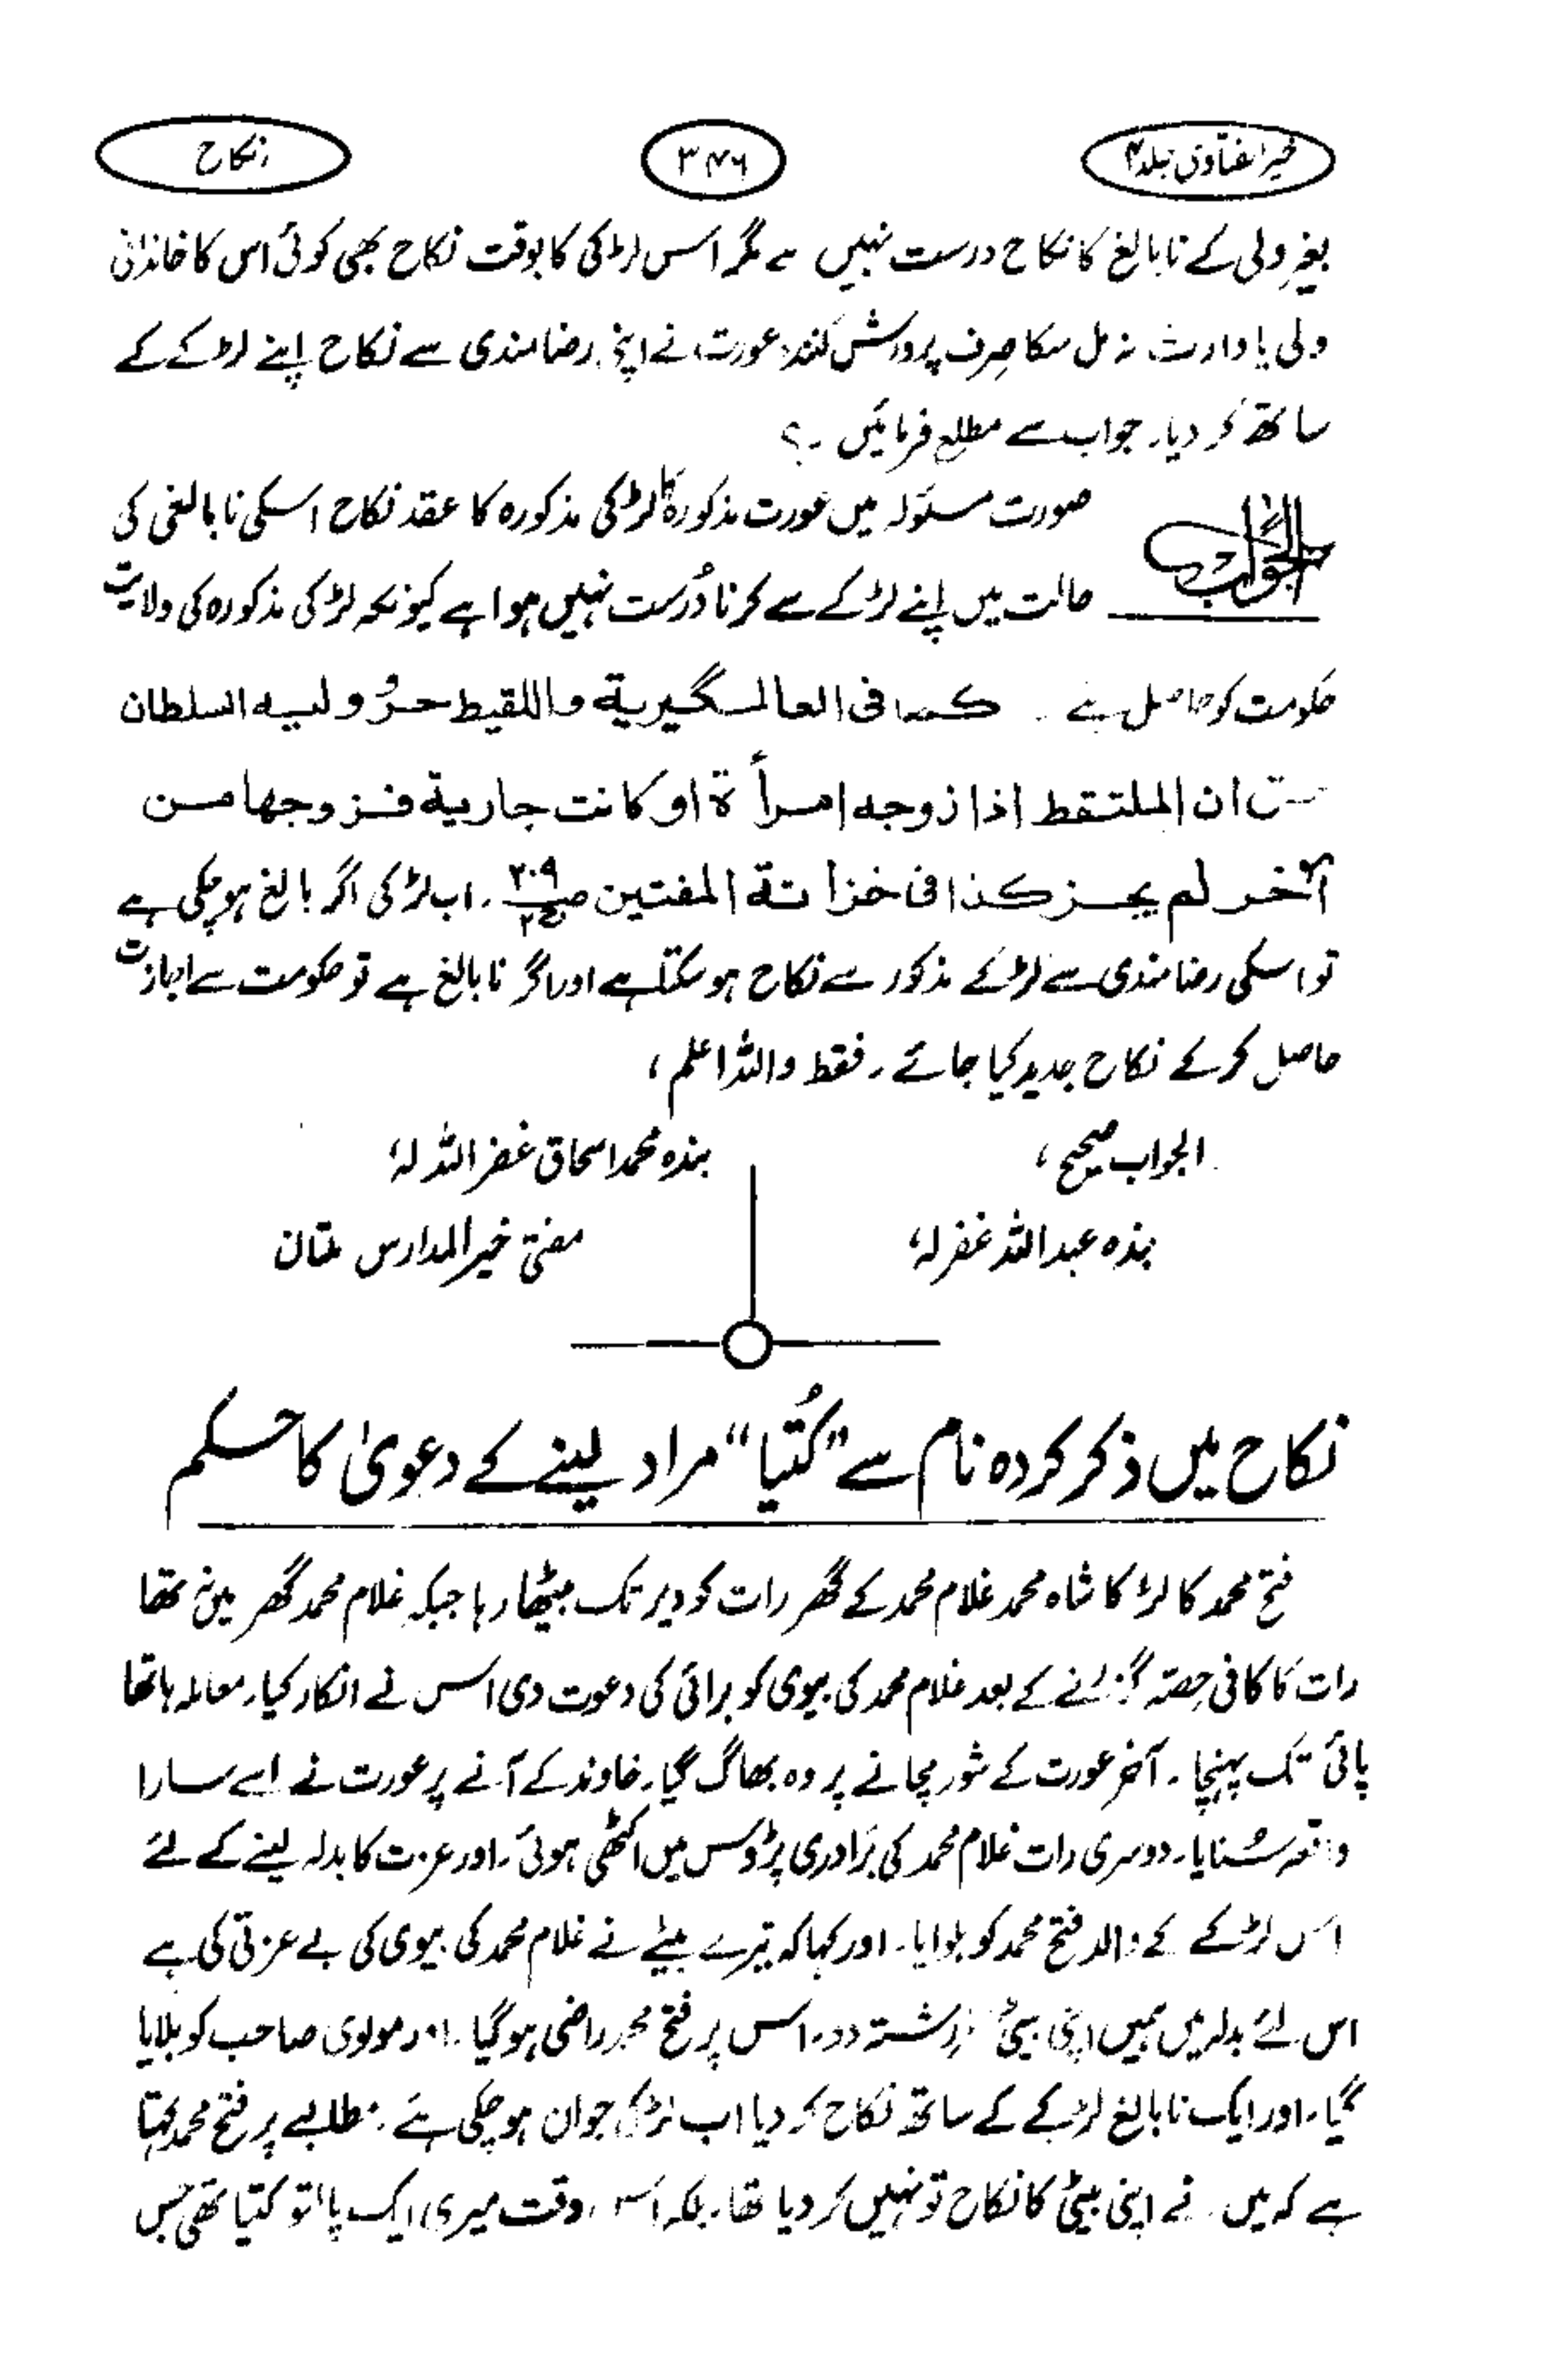 خیر الفتاویٰ جلد ۴
۳۴۶
نکاح
بغیر ولی کے نابالغ کا نکاح درست نہیں ہے مگر اس لڑکی کا بوقت نکاح بھی کوئی اس کا خاندانی
ولی یا وارث نہ مل سکا صرف پرورش کنندہ عورت نے اپنی رضامندی سے نکاح اپنے لڑکے کے
ساتھ کر دیا۔ جواب سے مطلع فرمائیں۔؟
الجواب
صورت مسئولہ میں عورت مذکورہ کا لڑکی مذکورہ کا عقد نکاح اسکی نابالغی کی
حالت میں اپنے لڑکے سے کرنا دُرست نہیں ہوا ہے کیونکہ لڑکی مذکورہ کی ولایت
حکومت کو حاصل ہے۔ کما فی العالمگیریة واللقیط حرٌ ولیه السلطان
ان الملتقط اذا زوجه امرأة او کانت جاریة فزوجها من
آخر لم یجز کذا فی خزانة المفتین ص۲۰۹ ج۲۔ اب لڑکی اگر بالغ ہو چکی ہے
تو اسکی رضامندی سے لڑکے مذکور سے نکاح ہو سکتا ہے اور اگر نابالغ ہے تو حکومت سے اجازت
حاصل کر کے نکاح جدید کیا جائے۔ فقط واللہ اعلم،
الجواب صحیح،
بندہ عبداللہ غفرلہ،
بندہ محمد اسحاق غفر اللہ لہ،
مفتی خیر المدارس ملتان
نکاح میں ذکر کردہ نام سے "کُتیا" مراد لینے کے دعویٰ کا حکم
فتح محمد کا لڑکا شاہ محمد غلام محمد کے گھر رات کو دیر تک بیٹھا رہا جبکہ غلام محمد گھر میں نہ تھا
رات کا کافی حصّہ گزرنے کے بعد غلام محمد کی بیوی کو برائی کی دعوت دی اس نے انکار کیا۔ معاملہ ہاتھا
پائی تک پہنچا۔ آخر عورت کے شور مچانے پر وہ بھاگ گیا۔ خاوند کے آنے پر عورت نے اسے سارا
واقعہ سُنایا۔ دوسری رات غلام محمد کی برادری پڑوس میں اکٹھی ہوئی۔ اور عزت کا بدلہ لینے کے لئے
اس لڑکے کے والد فتح محمد کو بلوایا۔ اور کہا کہ تیرے بیٹے نے غلام محمد کی بیوی کی بے عزتی کی ہے
اس لئے بدلہ میں ہمیں اپنی بیٹی کا رشتہ دو۔ اس پر فتح محمد راضی ہو گیا۔ اور مولوی صاحب کو بلایا
گیا۔ اور ایک نابالغ لڑکے کے ساتھ نکاح کر دیا اب لڑکی جوان ہو چکی ہے۔ مطالبے پر فتح محمد کہتا
ہے کہ میں نے اپنی بیٹی کا نکاح تو نہیں کر دیا تھا۔ بلکہ اس وقت میری ایک پالتو کتیا تھی جس